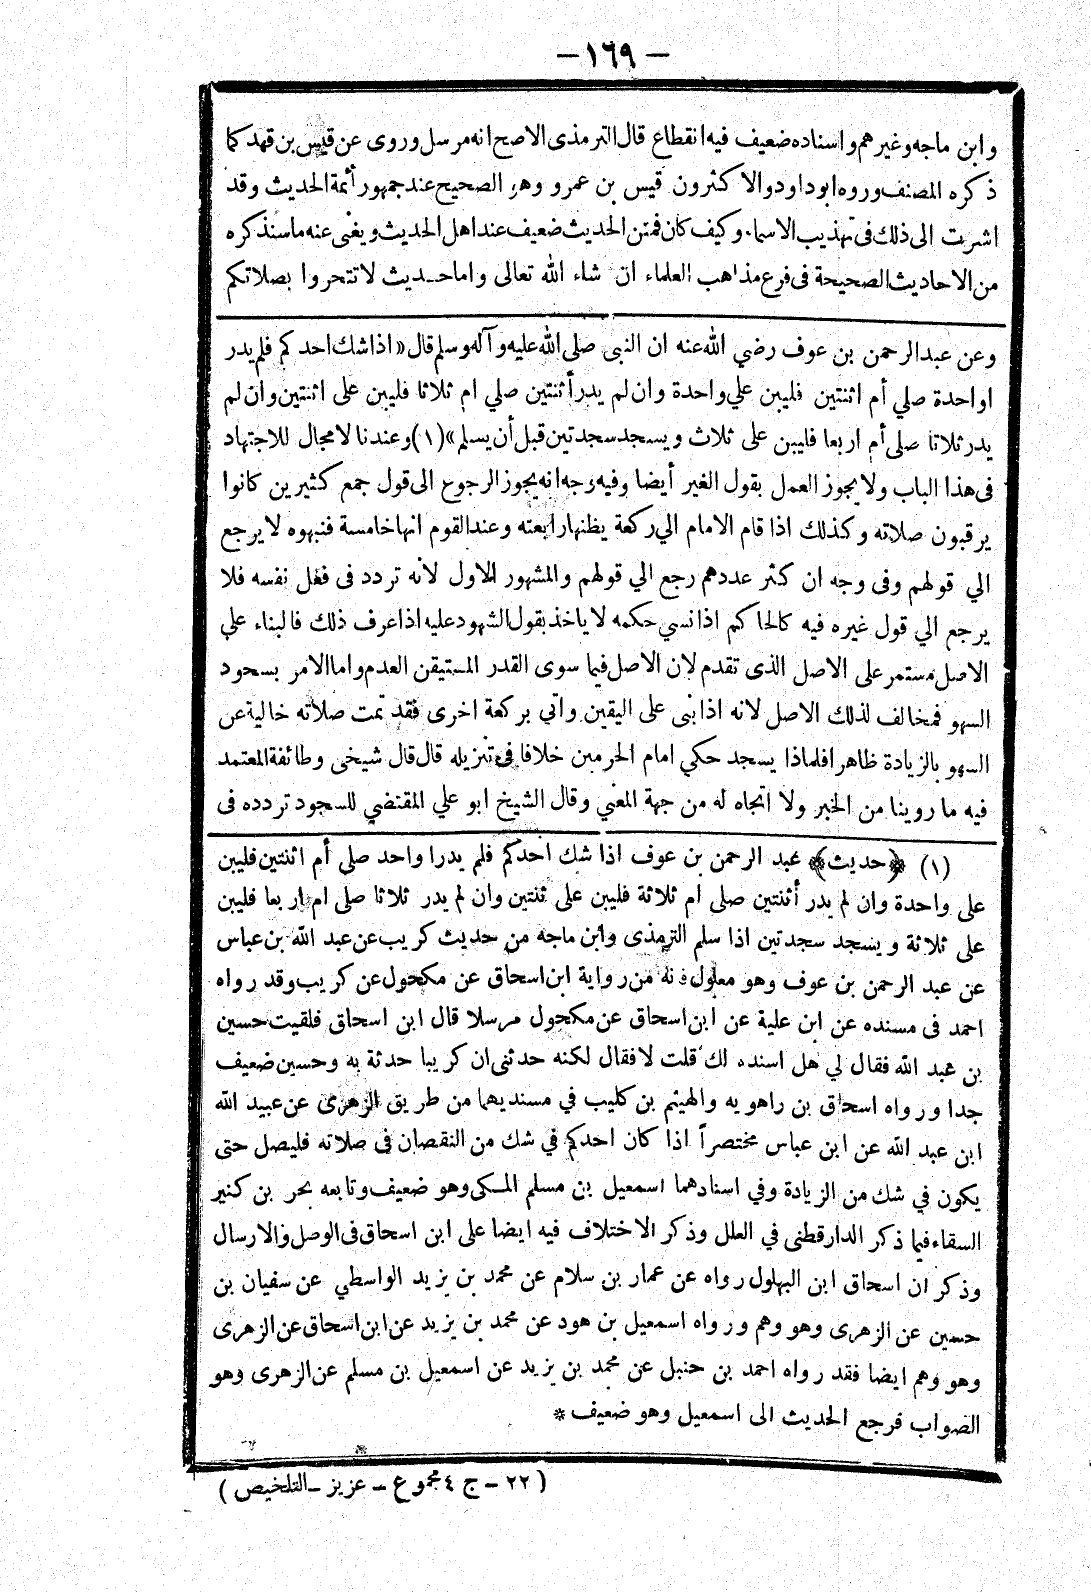 — ١٦٩ —
وابن ماجه وغيرهم واسناده ضعيف فيه انقطاع قال الترمذى الاصح انه مرسل وروى عن قيس بن قهد كما
ذكره المصنف وروه ابو داود والاكثرون قيس بن عمرو وهو الصحيح عند جمهور أئمة الحديث وقد
اشرت الى ذلك فى تهذيب الاسماء وكيف كان فمتن الحديث ضعيف عند اهل الحديث ويغنى عنه ما سنذكره
من الاحاديث الصحيحة فى فرع مذاهب العلماء ان شاء الله تعالى واما حديث لا تتحروا بصلاتكم
وعن عبد الرحمن بن عوف رضي الله عنه ان النبى صلى الله عليه وآله وسلم قال « اذا شك احدكم فلم يدر
اواحدة صلي أم اثنتين فليبن علي واحدة وان لم يدر أثنتين صلي ام ثلاثا فليبن على اثنتين وان لم
يدر ثلاثا صلى أم اربعا فليبن على ثلاث ويسجد سجدتين قبل أن يسلم » (١) وعندنا لا مجال للاجتهاد
فى هذا الباب ولا يجوز العمل بقول الغير أيضا وفيه وجه انه يجوز الرجوع الى قول جمع كثيرين كانوا
يرقبون صلاته وكذلك اذا قام الامام الي ركعة يظنها رابعته وعند القوم انها خامسة فنبهوه لا يرجع
الي قولهم وفى وجه ان كثر عددهم رجع الي قولهم والمشهور الاول لأنه تردد فى فعل نفسه فلا
يرجع الي قول غيره فيه كالحاكم اذا نسي حكمه لا ياخذ بقول الشهود عليه اذا عرف ذلك فالبناء علي
الاصل مستمر على الاصل الذى تقدم لان الاصل فيما سوى القدر المستيقن العدم واما الامر بسجود
السهو فمخالف لذلك الاصل لانه اذا بنى على اليقين واتي بركعة اخرى فقد تمت صلاته خالية عن
السهو بالزيادة ظاهرا فلماذا يسجد حكي امام الحرمين خلافا في تنزيله قال قال شيخى وطائفة المعتمد
فيه ما روينا من الخبر ولا اتجاه له من جهة المعني وقال الشيخ ابو علي المقتضي للسجود تردده فى
(١) ﴿حديث﴾ عبد الرحمن بن عوف اذا شك احدكم فلم يدرا واحد صلي أم اثنتين فليبن
على واحدة وان لم يدر أثنتين صلى ام ثلاثة فليبن على ثنتين وان لم يدر ثلاثا صلى ام اربعا فليبن
على ثلاثة ويسجد سجدتين اذا سلم الترمذى وابن ماجه من حديث كريب عن عبد الله بن عباس
عن عبد الرحمن بن عوف وهو معلول فانه من رواية ابن اسحاق عن مكحول عن كريب وقد رواه
احمد فى مسنده عن ابن علية عن ابن اسحاق عن مكحول مرسلا قال ابن اسحاق فلقيت حسين
بن عبد الله فقال لي هل اسنده لك قلت لا فقال لكنه حدثنى ان كريبا حدثة به وحسين ضعيف
جدا ورواه اسحاق بن راهويه والهيثم بن كليب في مسنديهما من طريق الزهرى عن عبيد الله
ابن عبد الله عن ابن عباس مختصراً اذا كان احدكم في شك من النقصان فى صلاته فليصل حتى
يكون في شك من الزيادة وفي اسنادهما اسمعيل بن مسلم المكى وهو ضعيف وتابعه بحر بن كنير
السقاء فيما ذكر الدارقطنى في العلل وذكر الاختلاف فيه ايضا على ابن اسحاق فى الوصل والارسال
وذكر ان اسحاق ابن البهلول رواه عن عمار بن سلام عن محمد بن يزيد الواسطي عن سفيان بن
حسين عن الزهرى وهو وهم ورواه اسمعيل بن هود عن محمد بن يزيد عن ابن اسحاق عن الزهرى
وهو وهم ايضا فقد رواه احمد بن حنبل عن محمد بن يزيد عن اسمعيل بن مسلم عن الزهرى وهو
الصواب فرجع الحديث الى اسمعيل وهو ضعيف *
( ٢٢ – ج ٤ مجموع – عزيز – التلخيص )